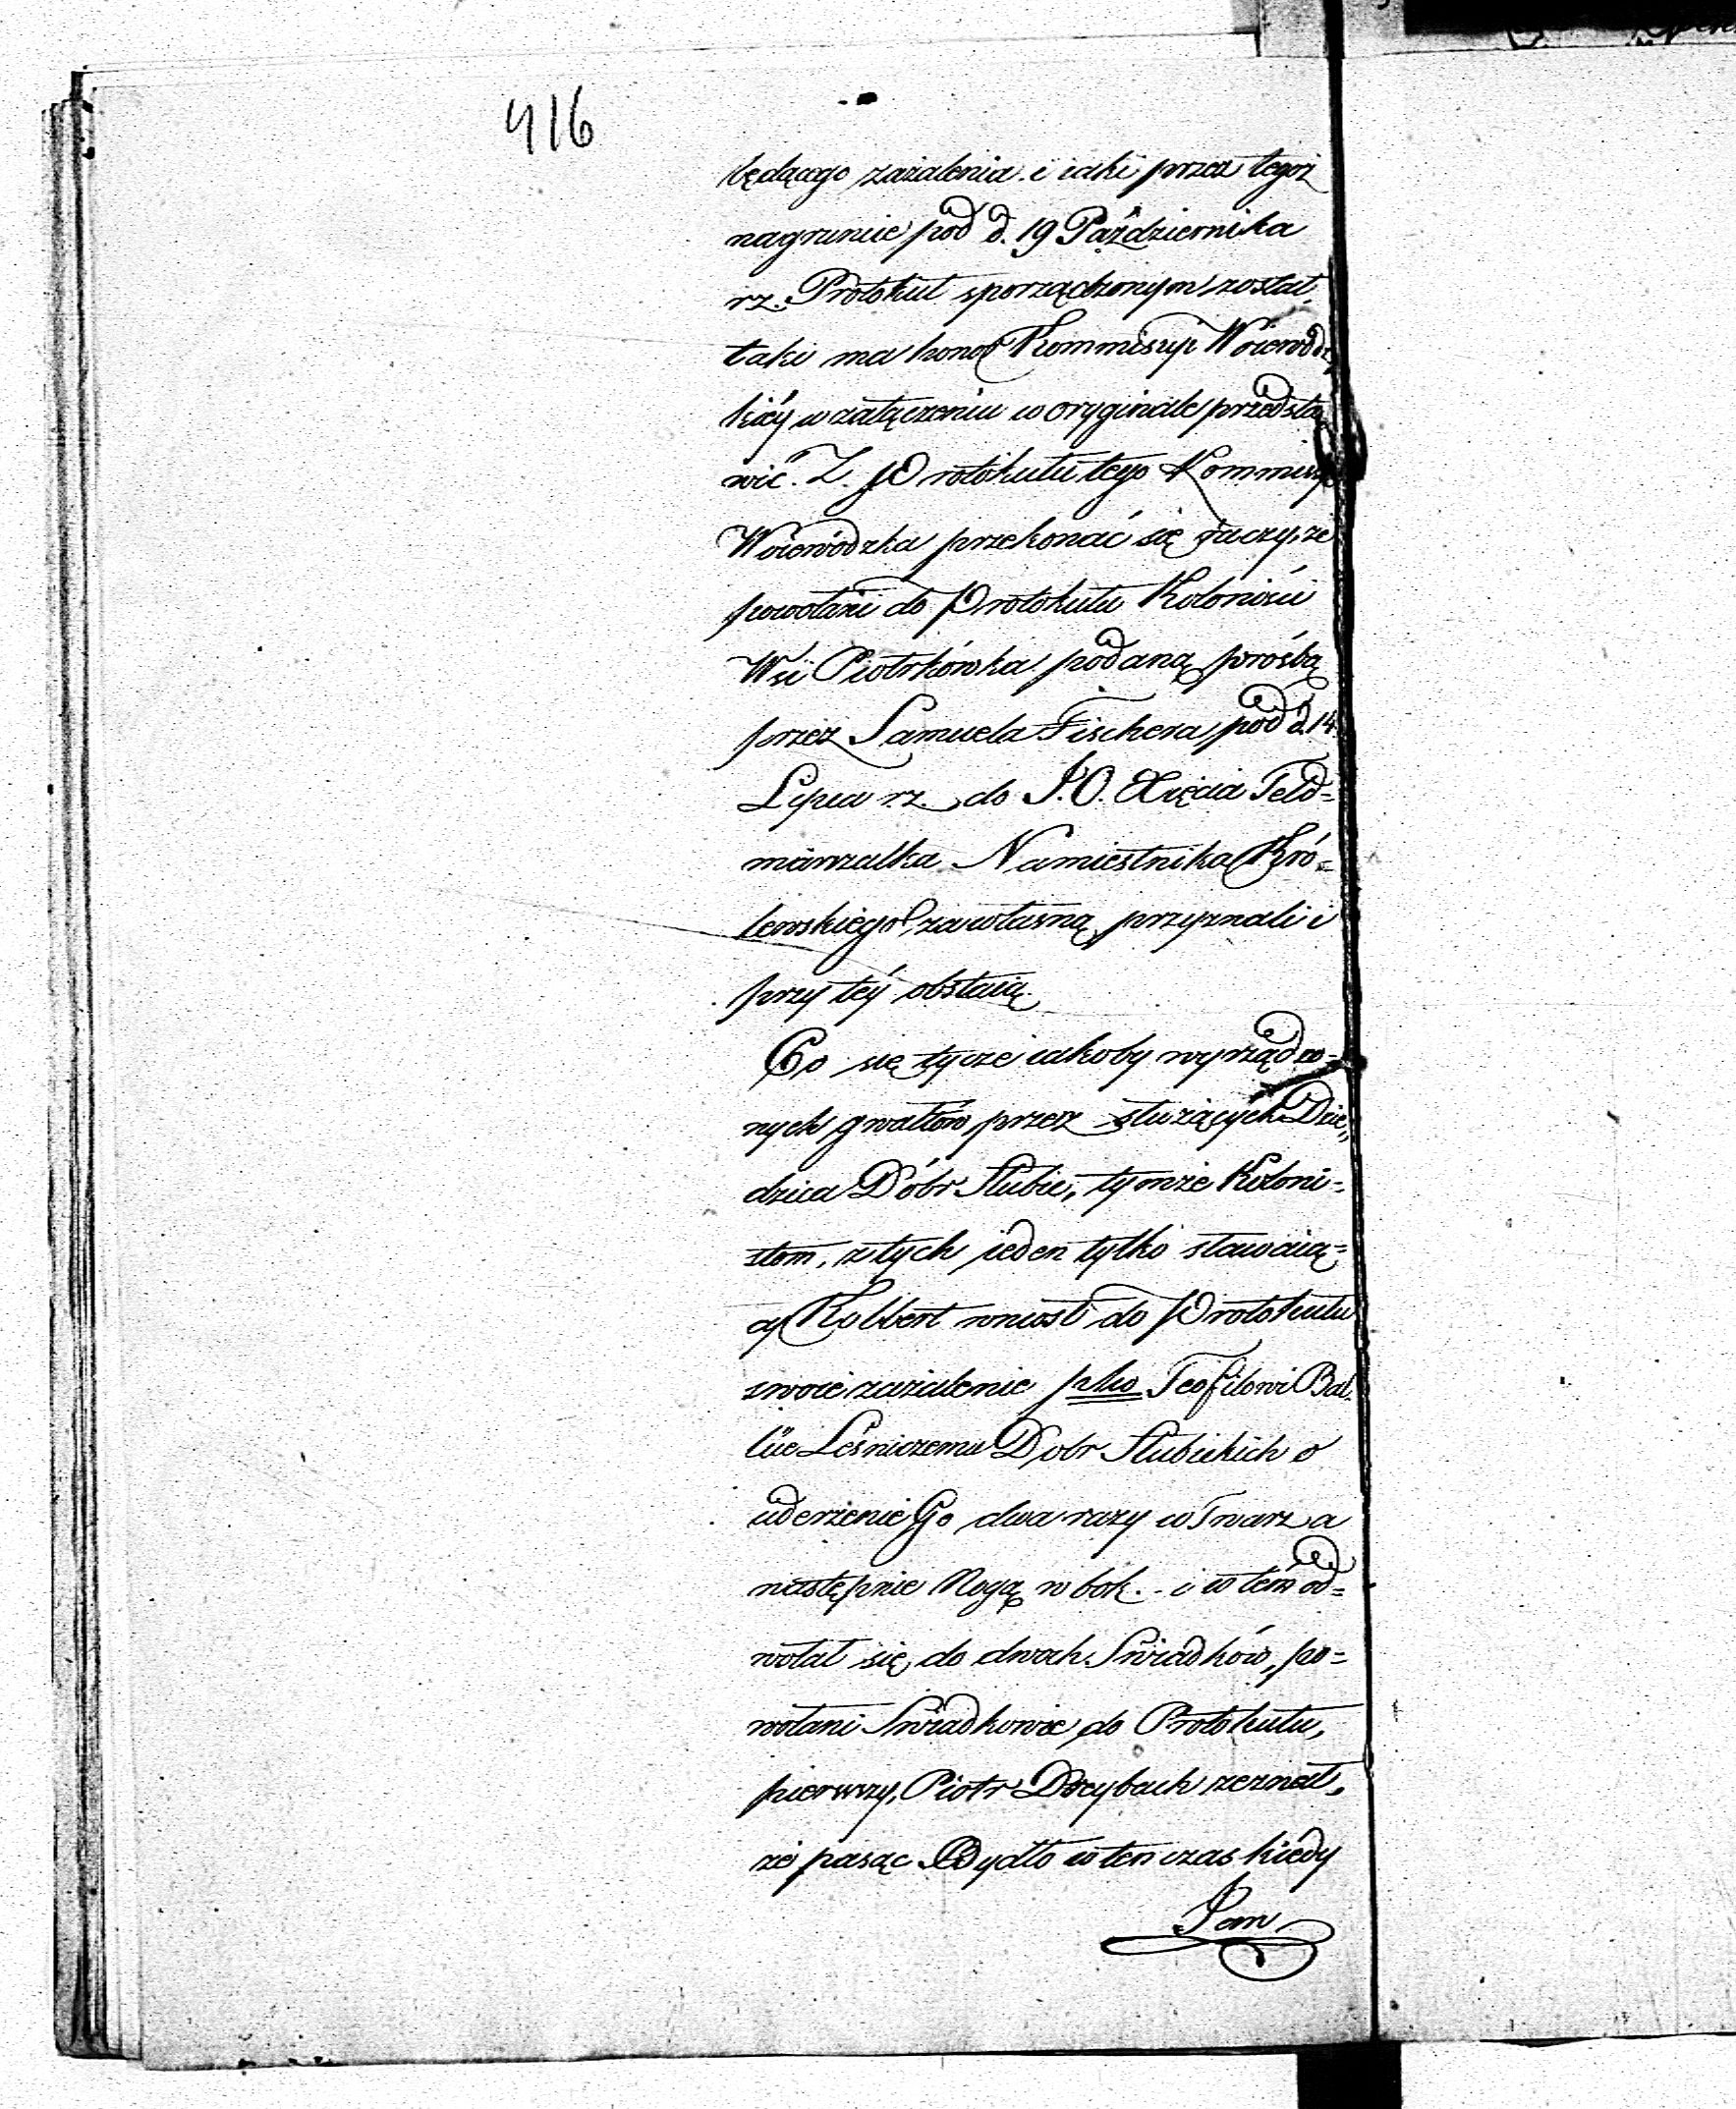 416
będącego zażalenia i iaki przez tegoż
nagruncie pod d. 19 Października
rz. Protokuł sporządzonym został,
taki ma honor Kommisyi Woiewódz
kiéy w załączeniu w oryginale przedsta
wić. Z. Protokułu tego Kommisya
Woiewódzka przekonać się raczy, że
powołani do Protokułu Koloniści
Wsi Piotrkówka podaną prośbą
przez Samuela Fischera pod d. 14
Lipca r.z. do J.O. Xięcia Feld=
marszałka Namiestnika Kró=
lewskiego za własną przyznali i
przy téy obstaią.
Co się tycze iakoby wyrządzo=
nych gwałtów przez służących Dzie„
dzica Dóbr Słubic, tymże Koloni=
stom, z tych ieden tylko stawaią=
cy Kolbert wniosł do Protokułu
swoie zażalenie pko Teofilowi Bal
lüe Leśniczemu Dobr Słubickich o
uderzenie Go dwa razy w Twarz a
następnie Nogą w bok. i w tém od=
wołał się do dwoch Swiadków, po=
wołani Swiadkowie do Protokułu,
pierwszy, Piotr Dreybach zeznał,
że pasąc Bydło w ten czas kiedy
Pan